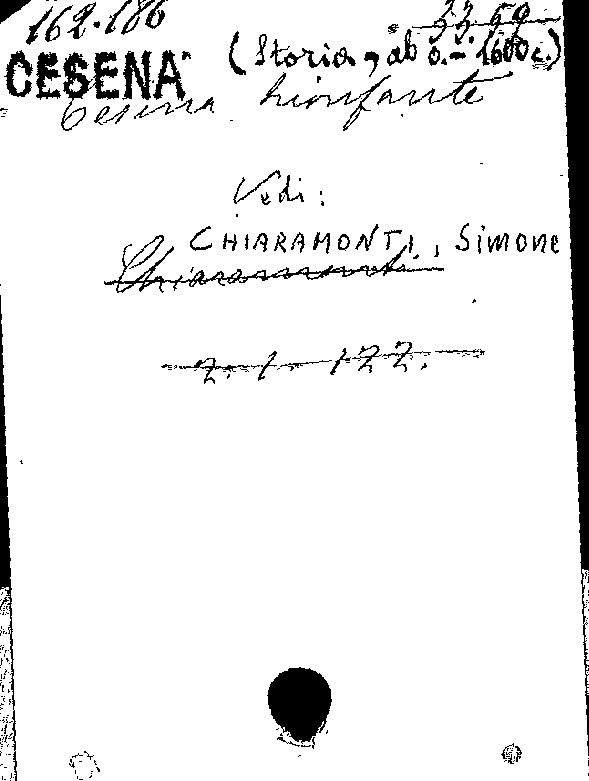 162.186 33.59
CESENA (Storia, ab o. - 1600 c.)
Cesena trionfante
Vedi:
CHIARAMONTI, Simone
Chiaramonti
7. 1. 122.